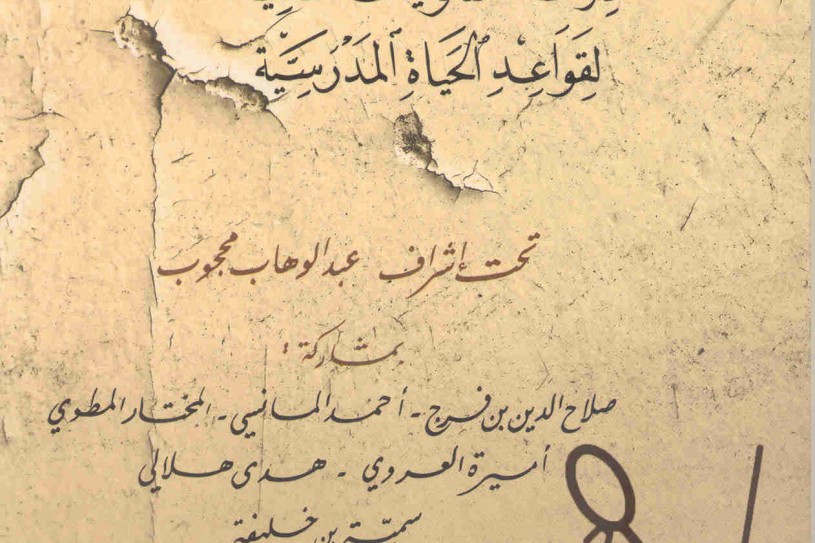 لِقَوَاعِدِ الْحَيَاةِ الْمَدْرَسِيَّةِ
تحت إشراف عبد الوهاب محجوب
بمشاركة :
صلاح الدين بن فرج - أحمد المانسي - المختار المطوي
أميرة العروي - هدى هلالي
سميّة بن خليفة